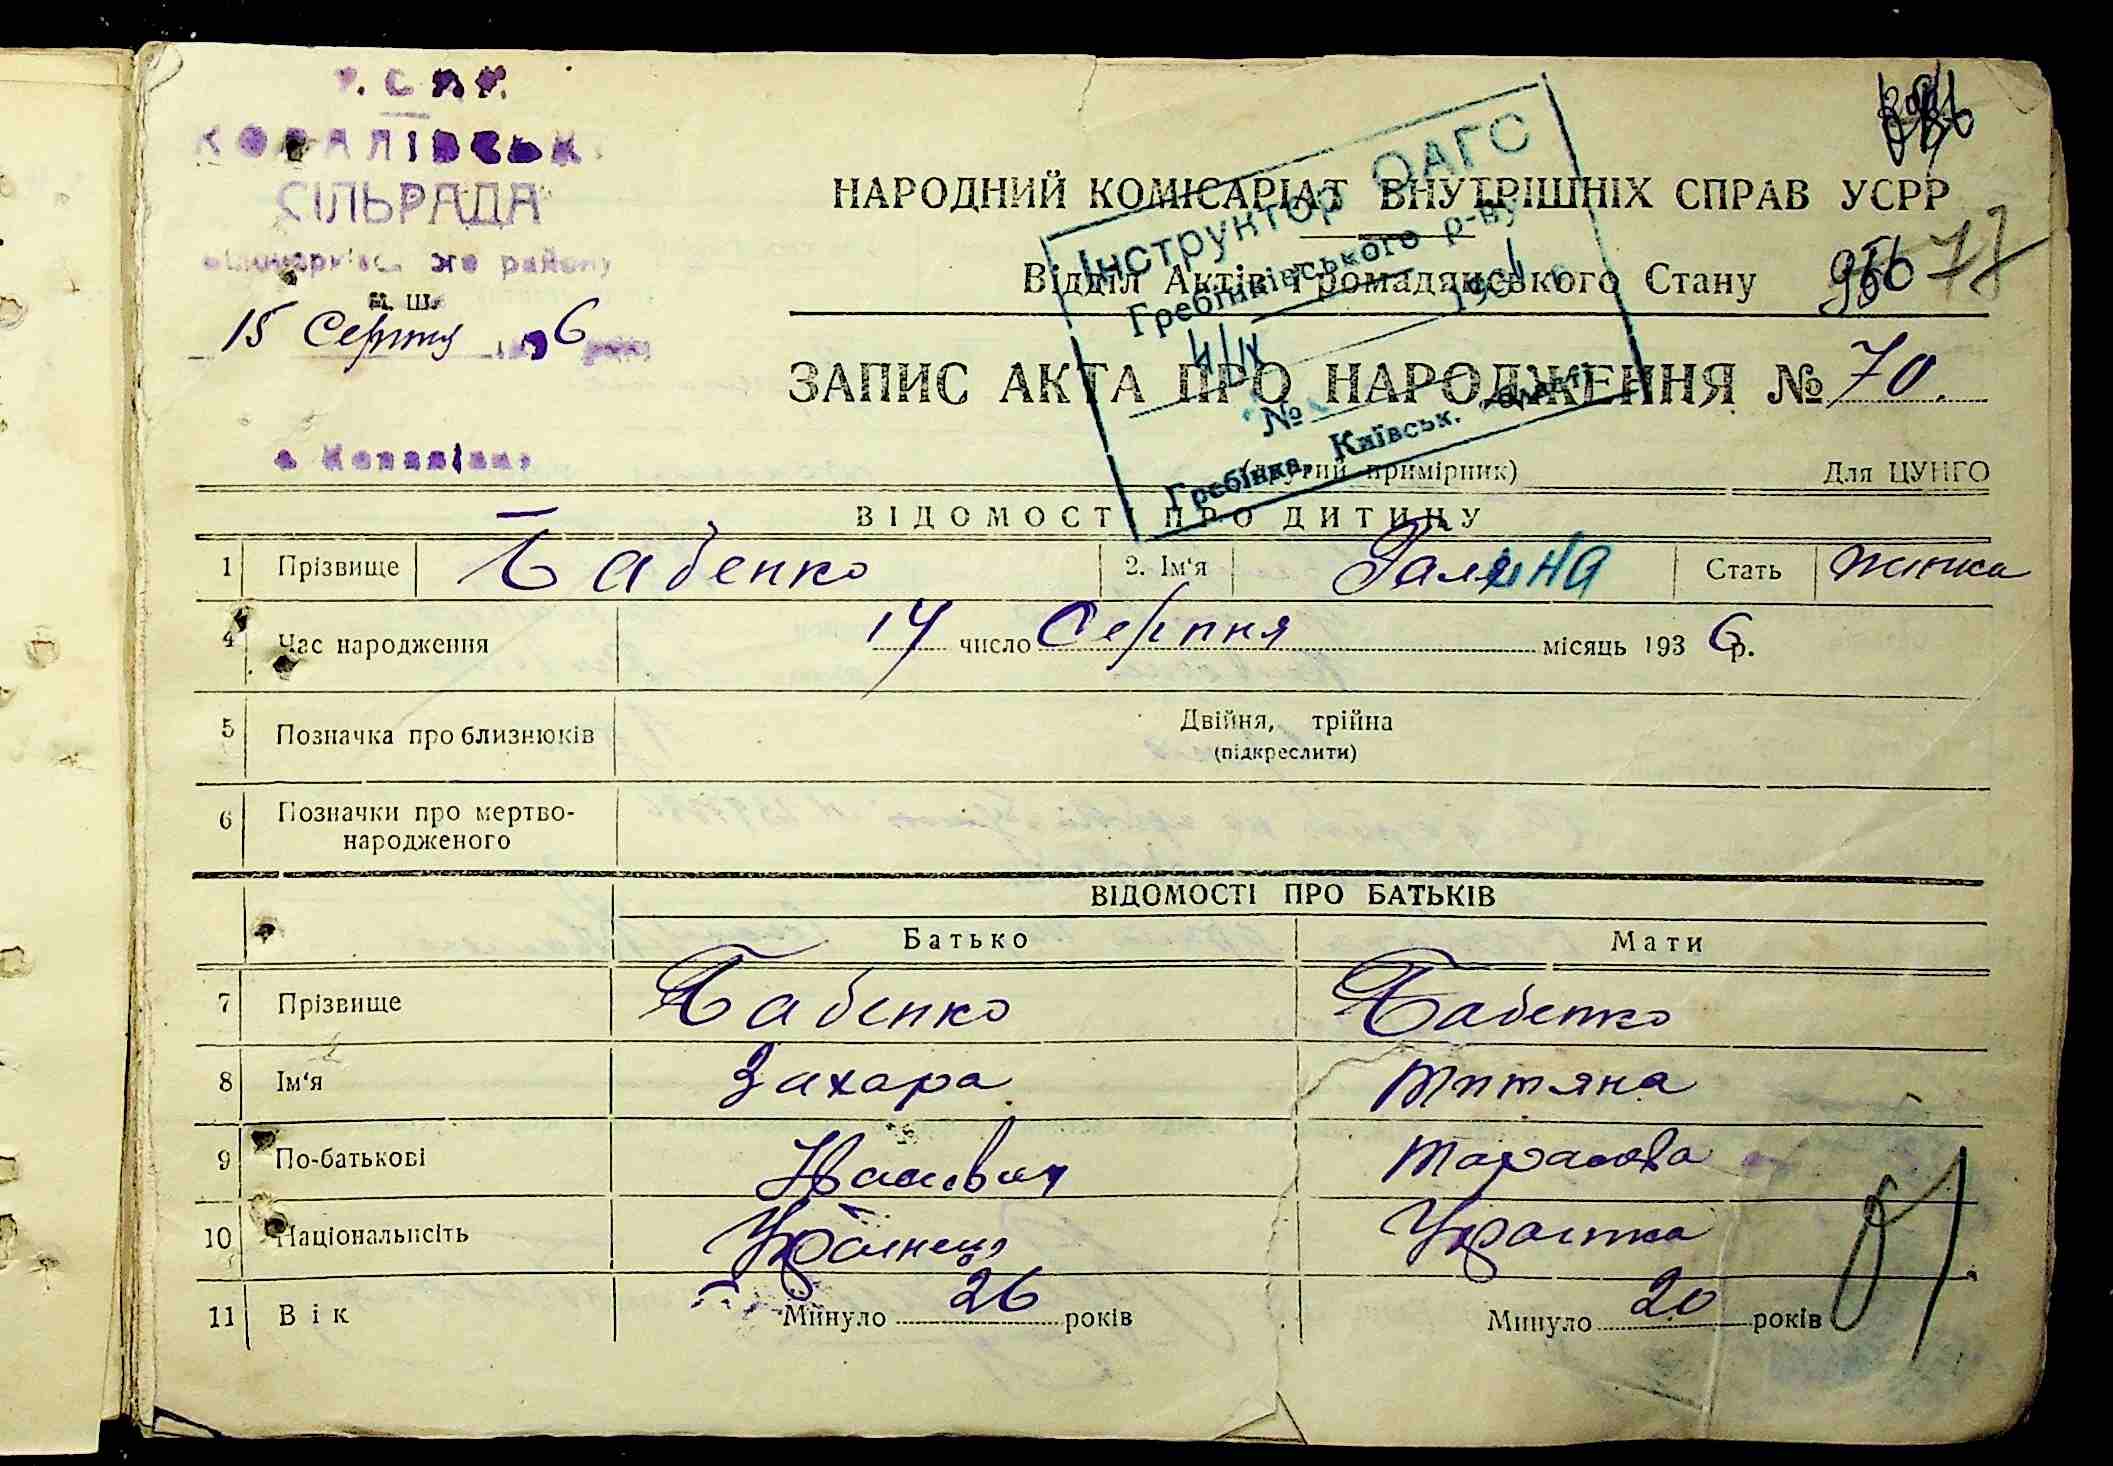 У.С.Р.Р.
КОВАЛІВСЬК.
СІЛЬРАДА
району
п. ш.
15 Серпня 1936 року
с. Ковалівка
НАРОДНИЙ КОМІСАРІАТ ВНУТРІШНІХ СПРАВ УСРР
Відділ Актів Громадянського Стану
Інструктор ОАГС
Гребінківського р-ву
№
Гребінка, Київськ.
ЗАПИС АКТА ПРО НАРОДЖЕННЯ № 70.
(другий примірник) Для ЦУНГО
ВІДОМОСТІ ПРО ДИТИНУ
1 Прізвище Бабенко 2. Ім'я Галина Стать жінка
4 Час народження 14 число Серпня місяць 1936 р.
5 Позначка про близнюків Двійня, трійна
(підкреслити)
6 Позначки про мертво-
народженого
ВІДОМОСТІ ПРО БАТЬКІВ
Батько Мати
7 Прізвище Бабенко Бабенко
8 Ім'я Захара Титяна
9 По-батькові Тарасовва
10 Національність Українець Українка
11 Вік Минуло 26 років Минуло 20 років